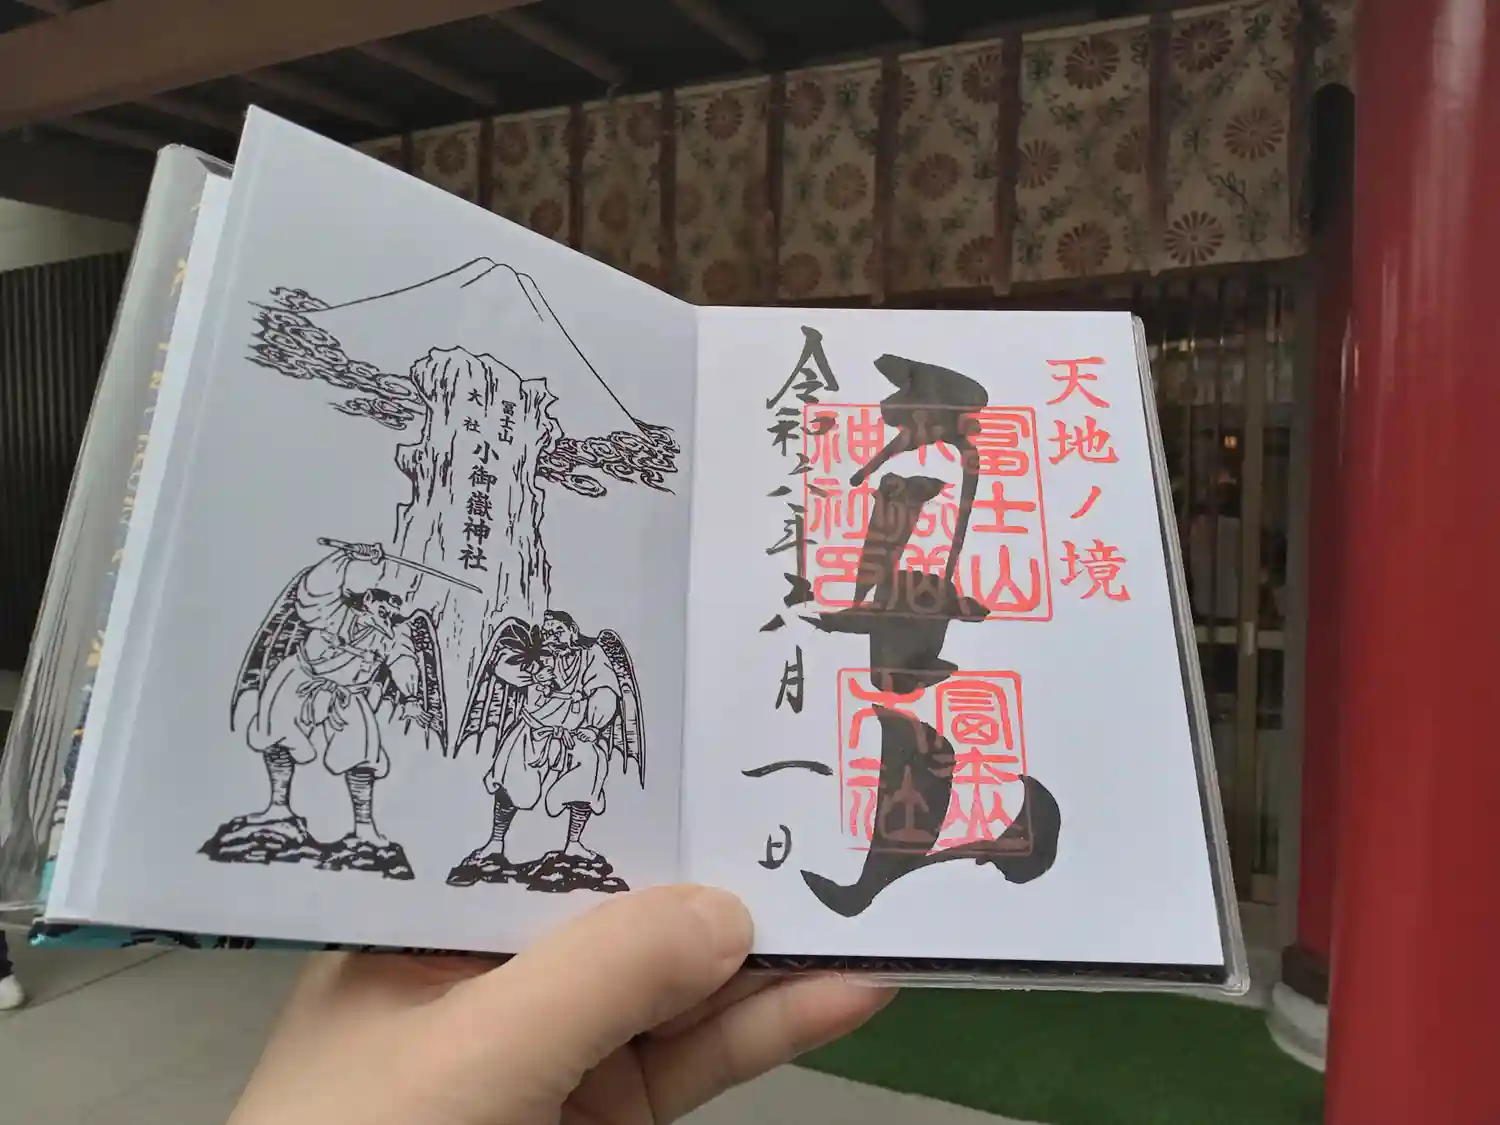 冨士山
大社
小御嶽神社
天地ノ境
冨士山
冨士山
小御嶽
神社印
冨士山
大社
令和六年六月一日